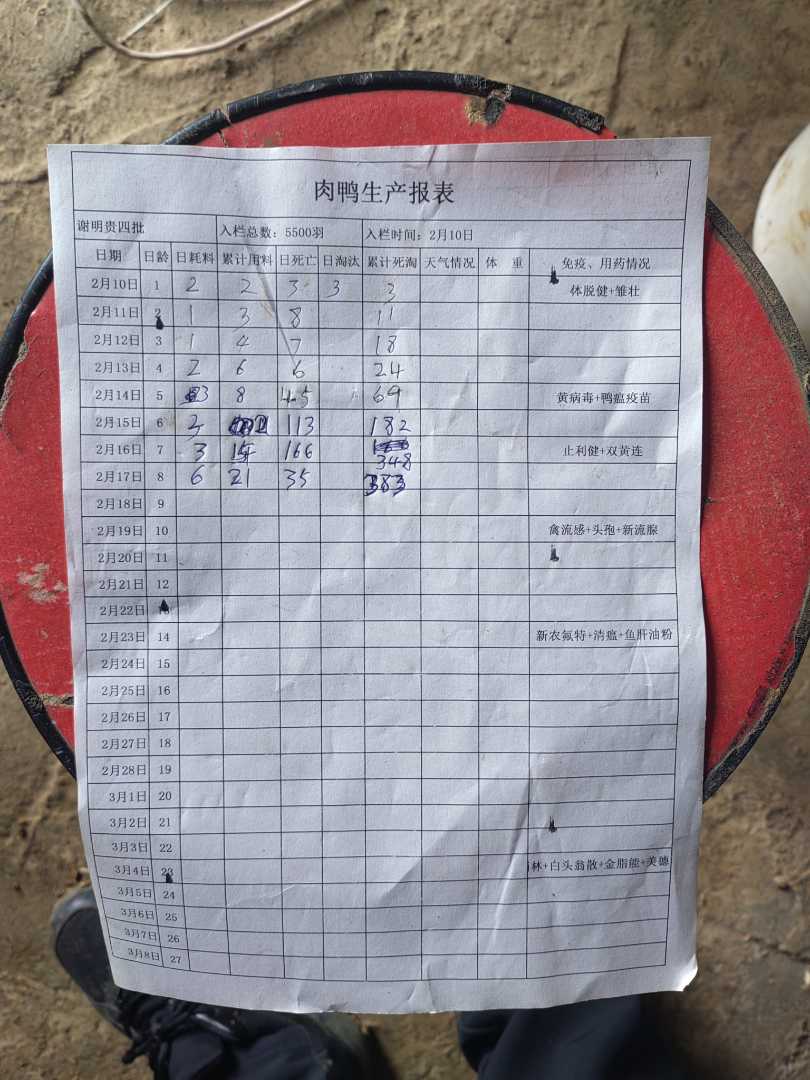 肉鸭生产报表
谢明贵四批 入栏总数：5500羽 入栏时间：2月10日
日期 日龄 日耗料 累计用料 日死亡 日淘汰 累计死淘 天气情况 体 重 免疫、用药情况
2月10日 1 2 2 3 3 3 体脱健+雏壮
2月11日 2 1 3 8 11
2月12日 3 1 4 7 18
2月13日 4 2 6 6 24
2月14日 5 3 8 45 69 黄病毒+鸭瘟疫苗
2月15日 6 3 113 182
2月16日 7 3 15 166 348 止利健+双黄连
2月17日 8 6 21 35 383
2月18日 9
2月19日 10 禽流感+头孢+新流腺
2月20日 11
2月21日 12
2月22日
2月23日 14 新农氟特+清瘟+鱼肝油粉
2月24日 15
2月25日 16
2月26日 17
2月27日 18
2月28日 19
3月1日 20
3月2日 21
3月3日 22
3月4日 23 林+白头翁散+金脂能+美德
3月5日 24
3月6日 25
3月7日 26
3月8日 27